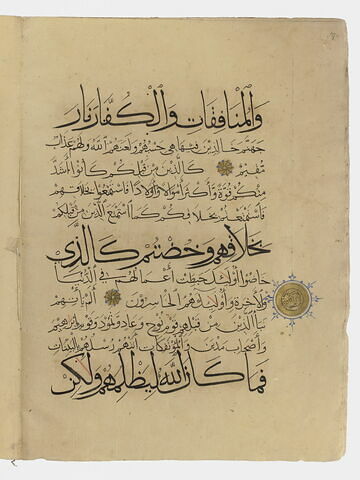 والمنافقات والكفار نار
جهنم خالدين فيها هي حسبهم ولعنهم الله ولهم عذاب
مقيم كالذين من قبلكم كانوا أشد
منكم قوة وأكثر أموالا وأولادا فاستمتعوا بخلاقهم
فاستمتعتم بخلاقكم كما استمتع الذين من قبلكم
بخلاقهم وخضتم كالذي
خاضوا أولئك حبطت أعمالهم في الدنيا
والآخرة وأولئك هم الخاسرون ألم يأتهم
نبأ الذين من قبلهم قوم نوح وعاد وثمود وقوم إبراهيم
وأصحاب مدين والمؤتفكات أتتهم رسلهم بالبينات
فما كان الله ليظلمهم ولكن